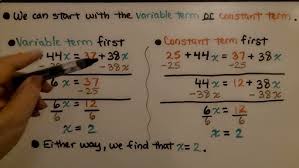 • We can start with the variable term or constant term.
• Variable term first
44x = 37 + 38x
-38x
6x = 37
-25
6x = 12
6 6
x = 2
• Constant term first
25 + 44x = 37 + 38x
-25 -25
44x = 12 + 38x
-38x -38x
6x = 12
6 6
x = 2
• Either way, we find that x = 2.